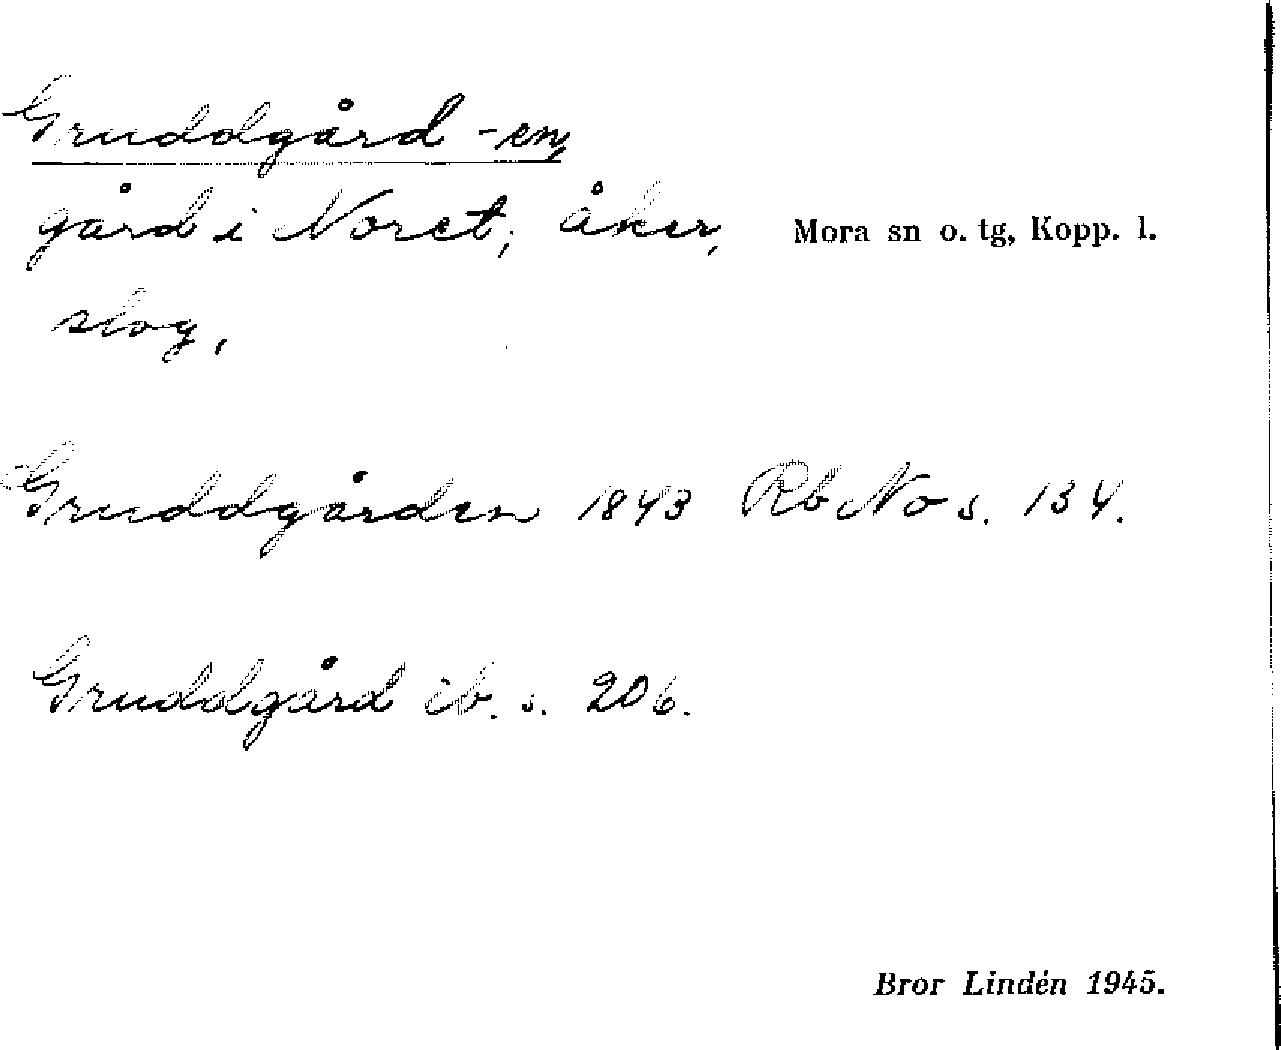 Gruddgård -en,
gård i Noret; åker, Mora sn o. tg, Kopp. l.
slog,
Gruddgården 1843 Rb No s. 134.
Gruddgård ib. s. 206.
Bror Lindén 1945.